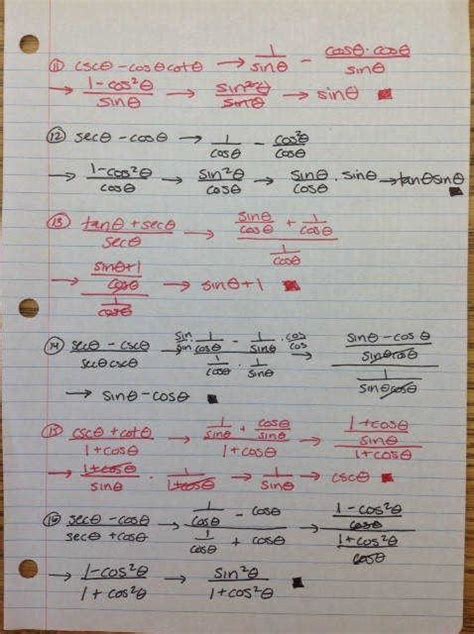 ⑪ cscθ - cosθcotθ → 1/sinθ - cosθ·cosθ/sinθ
→ 1-cos²θ/sinθ → sin²θ/sinθ → sinθ ■
⑫ secθ - cosθ → 1/cosθ - cos²θ/cosθ
→ 1-cos²θ/cosθ → sin²θ/cosθ → sinθ/cosθ · sinθ → tanθsinθ ■
⑬ tanθ + secθ/secθ → (sinθ/cosθ + 1/cosθ)/(1/cosθ)
→ (sinθ+1/cosθ)/(1/cosθ) → sinθ+1 ■
⑭ secθ - cscθ/secθcscθ → (sin/sin · 1/cosθ - 1/sinθ · cos/cos)/(1/cosθ · 1/sinθ) → (sinθ - cosθ/sinθcosθ)/(1/sinθcosθ)
→ sinθ - cosθ ■
⑮ cscθ + cotθ/1+cosθ → (1/sinθ + cosθ/sinθ)/(1+cosθ) → (1+cosθ/sinθ)/(1+cosθ)
→ 1+cosθ/sinθ · 1/1+cosθ → 1/sinθ → cscθ ■
⑯ secθ - cosθ/secθ + cosθ → (1/cosθ - cosθ)/(1/cosθ + cosθ) → (1-cos²θ/cosθ)/(1+cos²θ/cosθ)
→ 1-cos²θ/1+cos²θ → sin²θ/1+cos²θ ■